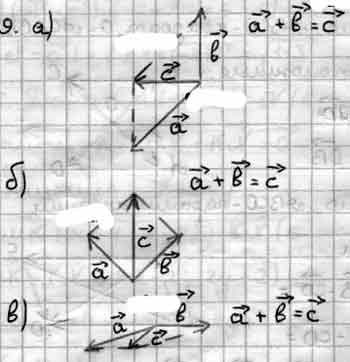 9. а) a⃗ + b⃗ = c⃗
b⃗
c⃗
a⃗
б) a⃗ + b⃗ = c⃗
c⃗
a⃗ b⃗
в) a⃗ b⃗ a⃗ + b⃗ = c⃗
c⃗